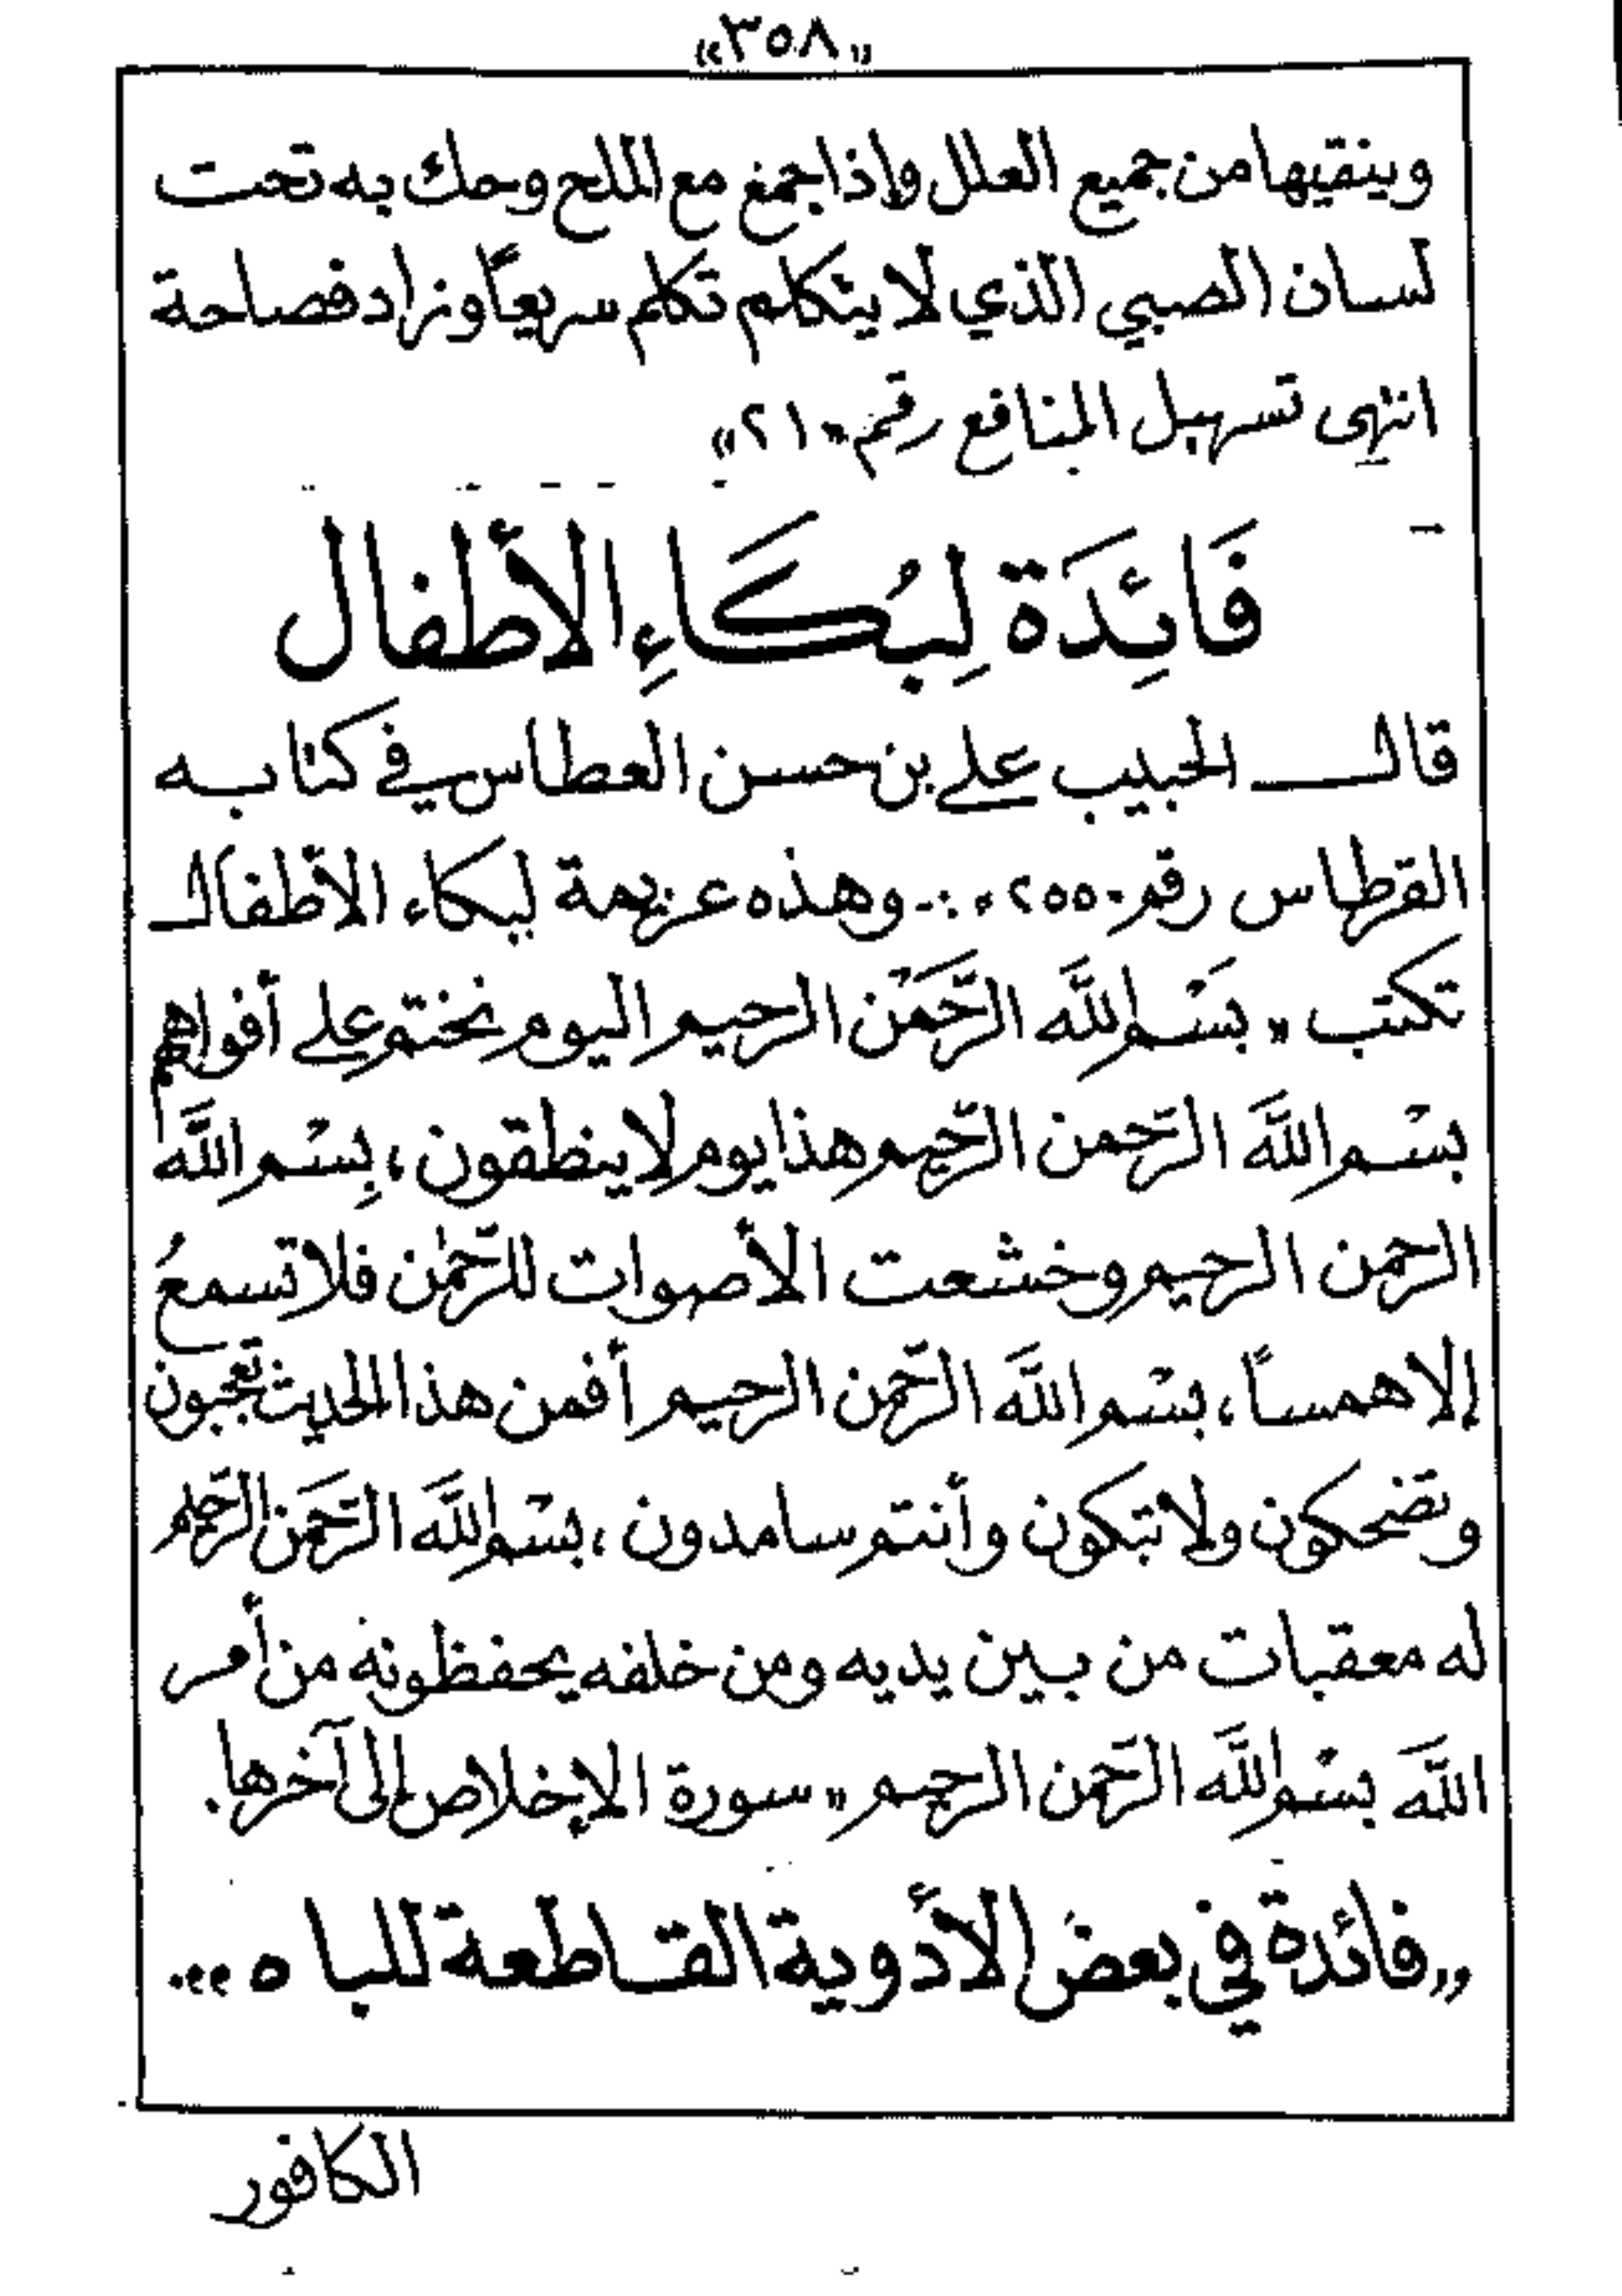 «٣٥٨»
وينقيها من جميع العلل وإذا جمع مع الملح وحك به تحت
لسان الصبي الذي لا يتكلم تكلم سريعاً وزاد فصاحة
انتهى تسهيل المنافع رقم «٢١»
فَائِدَة لِبُكَاءِ الأطفال
قال الحبيب علي بن حسن العطاس في كتابه
القرطاس رقم ٢٥٥٠ :- وهذه عزيمة لبكاء الأطفال
تكتب « بسْم اللَّه الرَّحمَن الرحيم اليوم نختم على أفواههم
بسْم اللَّه الرَّحمن الرَّحيم هذا يوم لا ينطقون ، بِسْم اللَّه
الرحمن الرحيم وخشعت الأصوات للرَّحمٰن فلا تسمعُ
إلا همساً ، بسْم اللَّه الرَّحمن الرحيم أفمن هذا الحديث تعجبون
وتضحكون ولا تبكون وأنتم سامدون ، بسْم اللَّه الرَّحمَن الرَّحيم
له معقبات من بين يديه ومن خلفه يحفظونه من أمر
اللَّه بسْم اللَّه الرَّحمن الرحيم » سورة الإخلاص إلى آخرها .
«فائدة في بعض الأدوية القاطعة للباه» .
الكافور